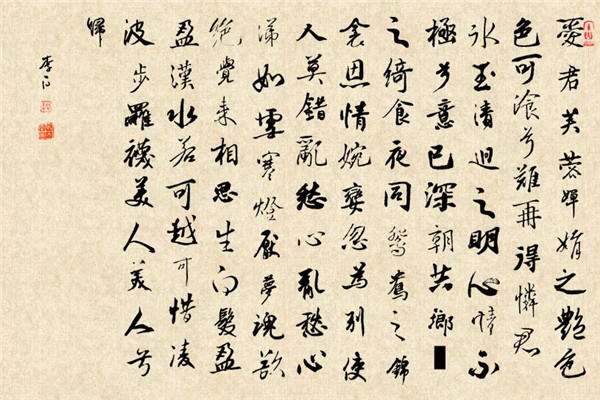 愛君芙蓉嬋娟之艷色
色可飡兮難再得憐君
冰玉清迥之明心情不
極兮意已深朝共瑯
之綺食夜同鴛鴦之錦
衾恩情婉孌忽為別使
人莫錯亂愁心亂愁心
涕如雪寒燈厭夢魂欲
絕覺來相思生白髮盈
盈漢水若可越可惜凌
波步羅襪美人美人兮
歸
李白